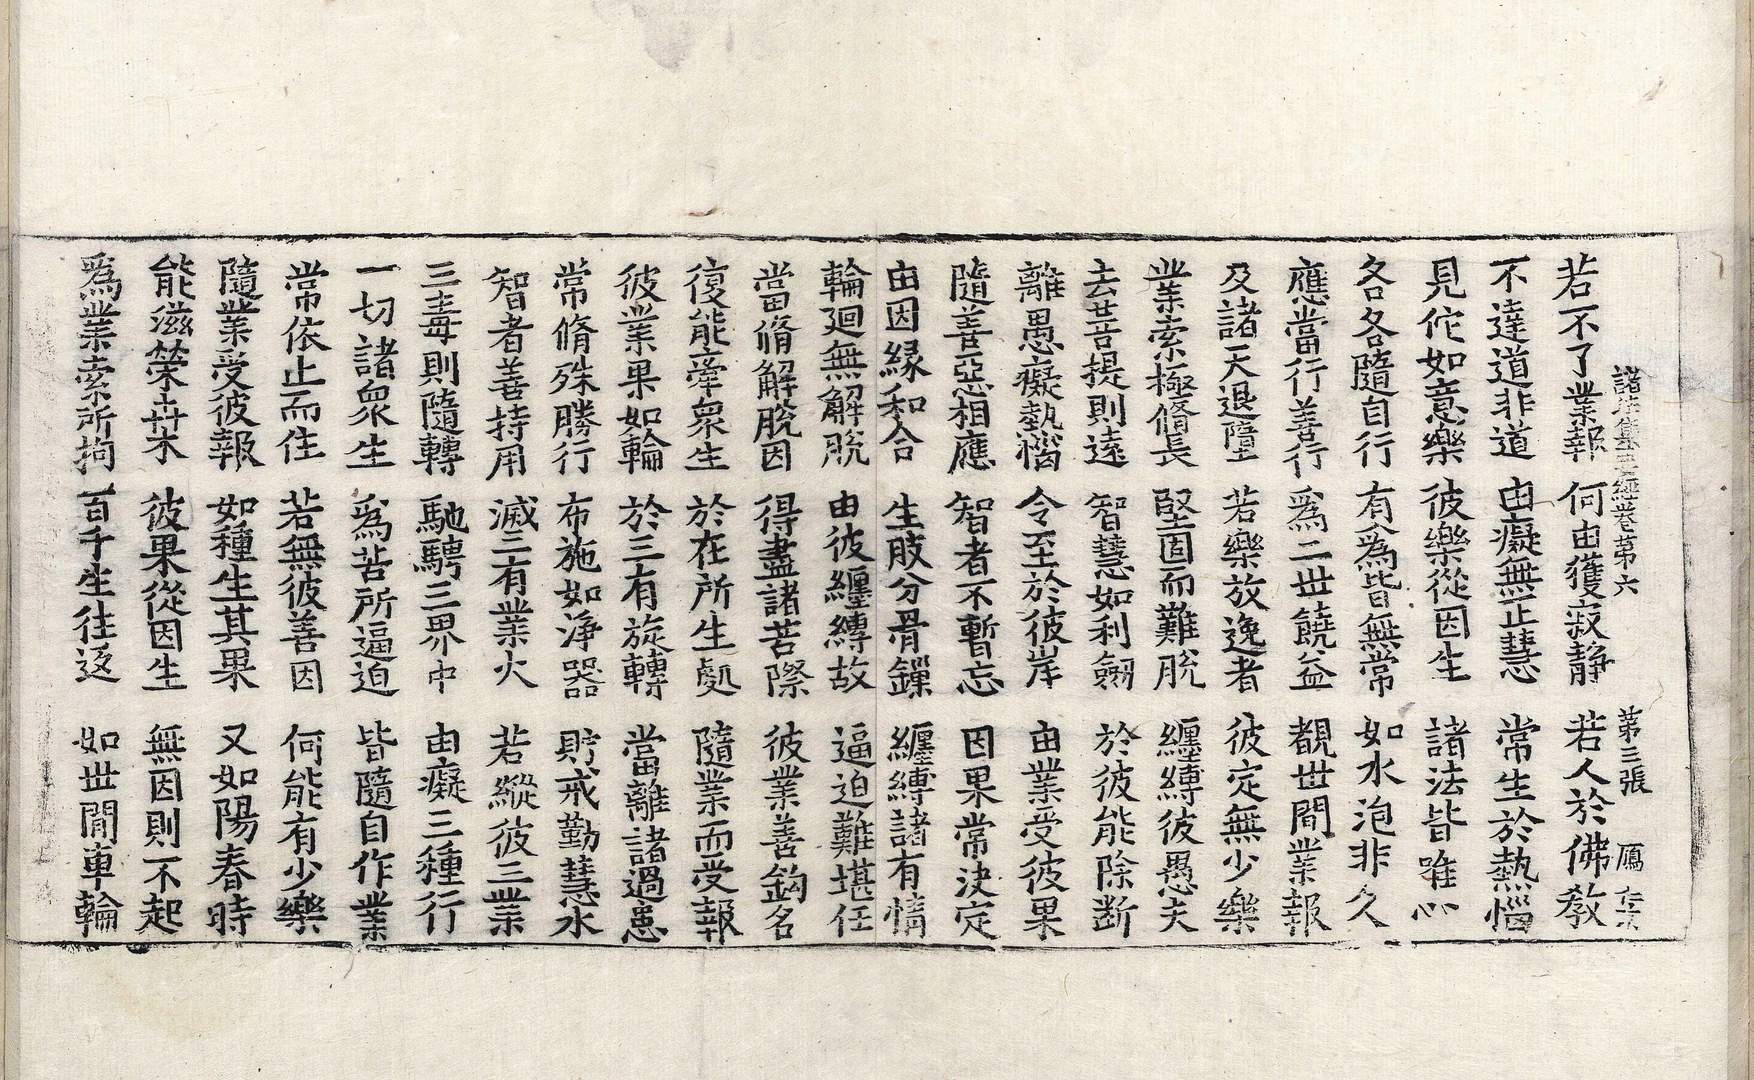 諸法集要經卷第六 第三張 鴈
若不了業報 何由獲寂静 若人於佛教
不達道非道 由癡無正慧 常生於熱惱
見佗如意樂 彼樂從因生 諸法皆唯心
各各隨自行 有爲皆無常 如水泡非久
應當行善行 爲二世饒益 觀世間業報
及諸天退墮 若樂放逸者 彼定無少樂
業索極脩長 堅固而難脫 纏縛彼愚夫
去菩提則遠 智慧如利劒 於彼能除斷
離愚癡熱惱 令至於彼岸 由業受彼果
隨善惡相應 智者不暫忘 因果常決定
由因緣和合 生肢分骨鏁 纏縛諸有情
輪廻無解脫 由彼纏縛故 逼迫難堪任
當脩解脫因 得盡諸苦際 彼業善鈎名
復能牽衆生 於在所生處 隨業而受報
彼業果如輪 於三有旋轉 當離諸過患
常脩殊勝行 布施如淨器 貯戒勤慧水
智者善持用 滅三有業火 若縱彼三業
三毒則隨轉 馳騁三界中 由癡三種行
一切諸衆生 爲苦所逼迫 皆隨自作業
常依止而住 若無彼善因 何能有少樂
隨業受彼報 如種生其果 又如陽春時
能滋榮卉木 彼果從因生 無因則不起
爲業索所拘 百千生往返 如世間車輪